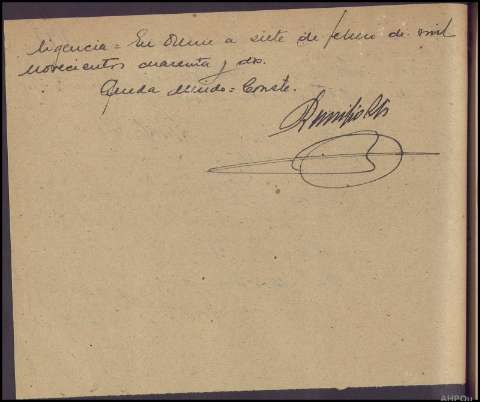 ligencia = En Orense a siete de febrero de mil
novecientos cuarenta y dos.
Queda unido = Conste.
AHPOu